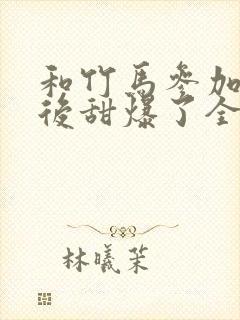 和竹馬參加
後甜爆了全
林曦茉